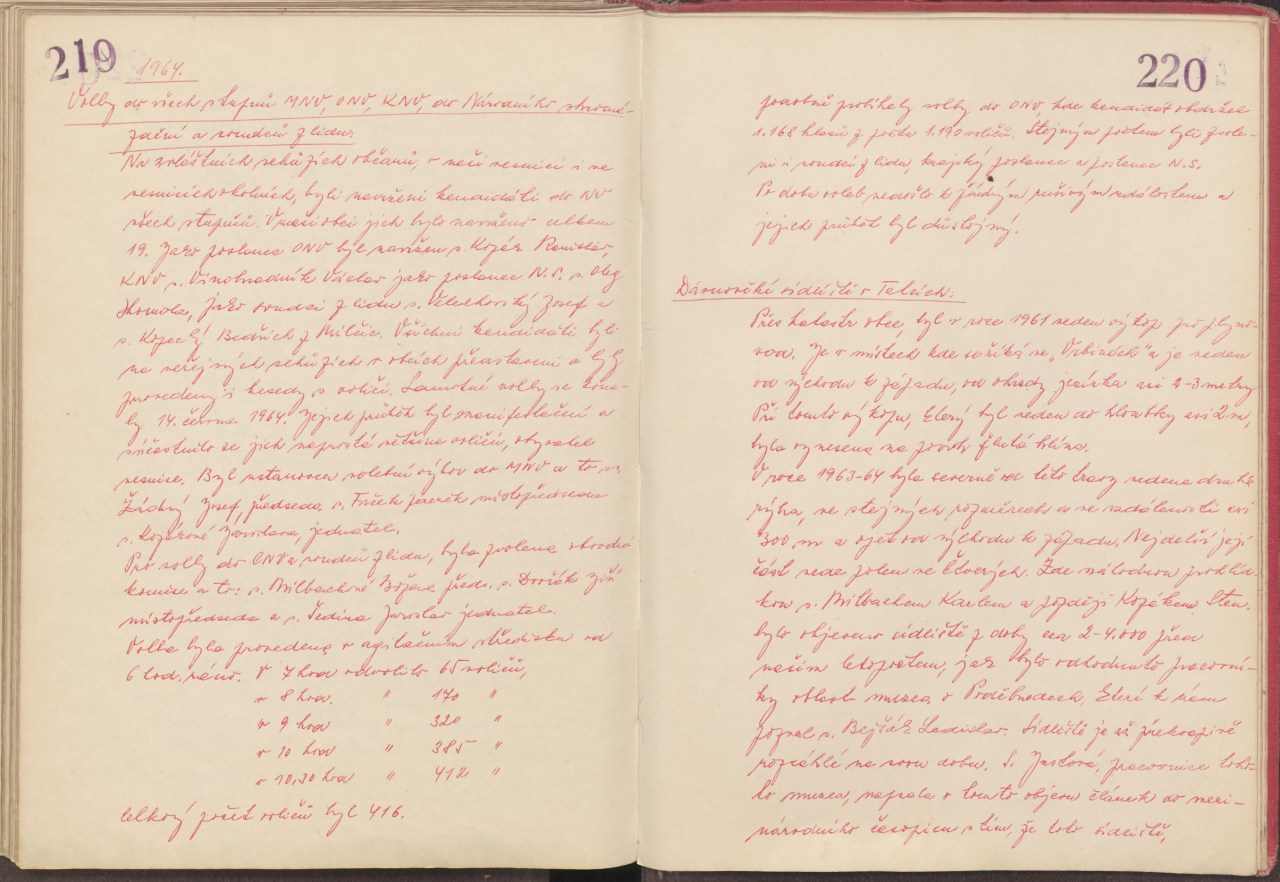 219
1964.
Volby do všech stupňů MNV, ONV, KNV, do Národního shromáž-
dění a soudců z lidu.
Na zvláštních schůzích občanů, v naší vesnici i ve
vesnicích okolních, byli navrženi kandidáti do NV
všech stupňů. V naší obci jich bylo navrženo celkem
19. Jako poslanec ONV byl navržen s. Kozák Rostislav,
KNV s. Vinohradník Václav jako poslanec N.S. s. Oleg
Homola, jako soudci z lidu s. Velechovský Josef a
s. Kopecký Bedřich z Milčic. Všichni kandidáti byli
na veřejných schůzích v obcích představeni a byly
provedeny i besedy s voliči. Samotné volby se kona-
ly 14. června 1964. Jejich průběh byl manifestační a
súčastnilo se jich naprostá většina voličů, obyvatel
vesnice. Byl ustanoven volební výbor do MNV a to s.
Žáčný Josef, předseda, s. Fišek místopředseda
s. Kozáková Jaroslava, jednatel.
Pro volby do ONV a soudců z lidu, byla zvolena obvodní
komise a to: s. Milbachová Božena předs. s. Dvořák Jiří
místopředseda a s. Šedina Jaroslav jednatel.
Volba byla provedena v agitačním středisku od
6 hod. ráno. V 7 hod odvolilo 65 voličů,
v 8 hod. " 170 "
v 9 hod " 320 "
v 10 hod " 385 "
v 10,30 hod " 412 "
Celkový počet voličů byl 416.
220
podobně probíhaly volby do ONV, kde kandidát obdržel
1.168 hlasů z počtu 1.190 voličů. Stejným počtem byli zvole-
ni i soudci z lidu, krajský poslanec a poslanec N.S.
Po dobu voleb nedošlo k žádným rušivým událostem a
jejich průběh byl důstojný.
Dávnověké sídliště v Tatcích.
Přes katastr obce, byl v roce 1961 veden výkop pro plyno-
vod. Je v místech kde se říká ve „Vrbinách" a je veden
od východu k západu, od ohrady jezírka asi 2-3 metry.
Při tomto výkopu, který byl veden do hloubky asi 2 m,
byla vynesena na povrch žlutá hlína.
V roce 1963-64 byla severně od této trasy vedena druhá
rýha, ve stejných rozměrech a ve vzdálenosti asi
300 m a opět od východu k západu. Nejdelší její
část vede polem ve Čtverých. Zde náhodnou prohlíd-
kou s. Milbachem Karlem a později Kozákem Stan.
bylo objeveno sídliště z doby cca 2-4.000 před
naším letopočtem, jak bylo odhodnuto pracovní-
ky oblast. muzea v Poděbradech, které k nám
pozval s. Bejšák Ladislav. Sídliště je až překvapivě
rozsáhlé na svou dobu. S. Justová, pracovnice toho-
to muzea, napsala o tomto objevu článek do mezi-
národního časopisu s tím, že toto sídliště,